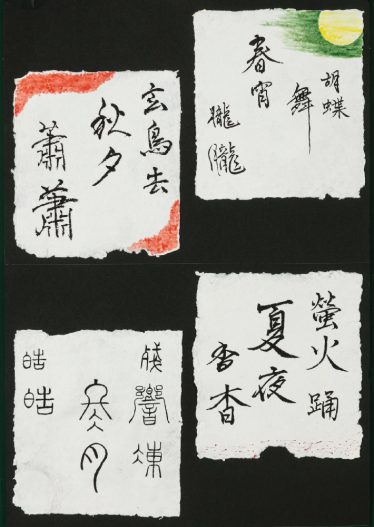 胡蝶
舞
春宵
朧朧
玄鳥去
秋夕
蕭蕭
螢火踊
夏夜
杳杳
響凍
冬月
皓皓